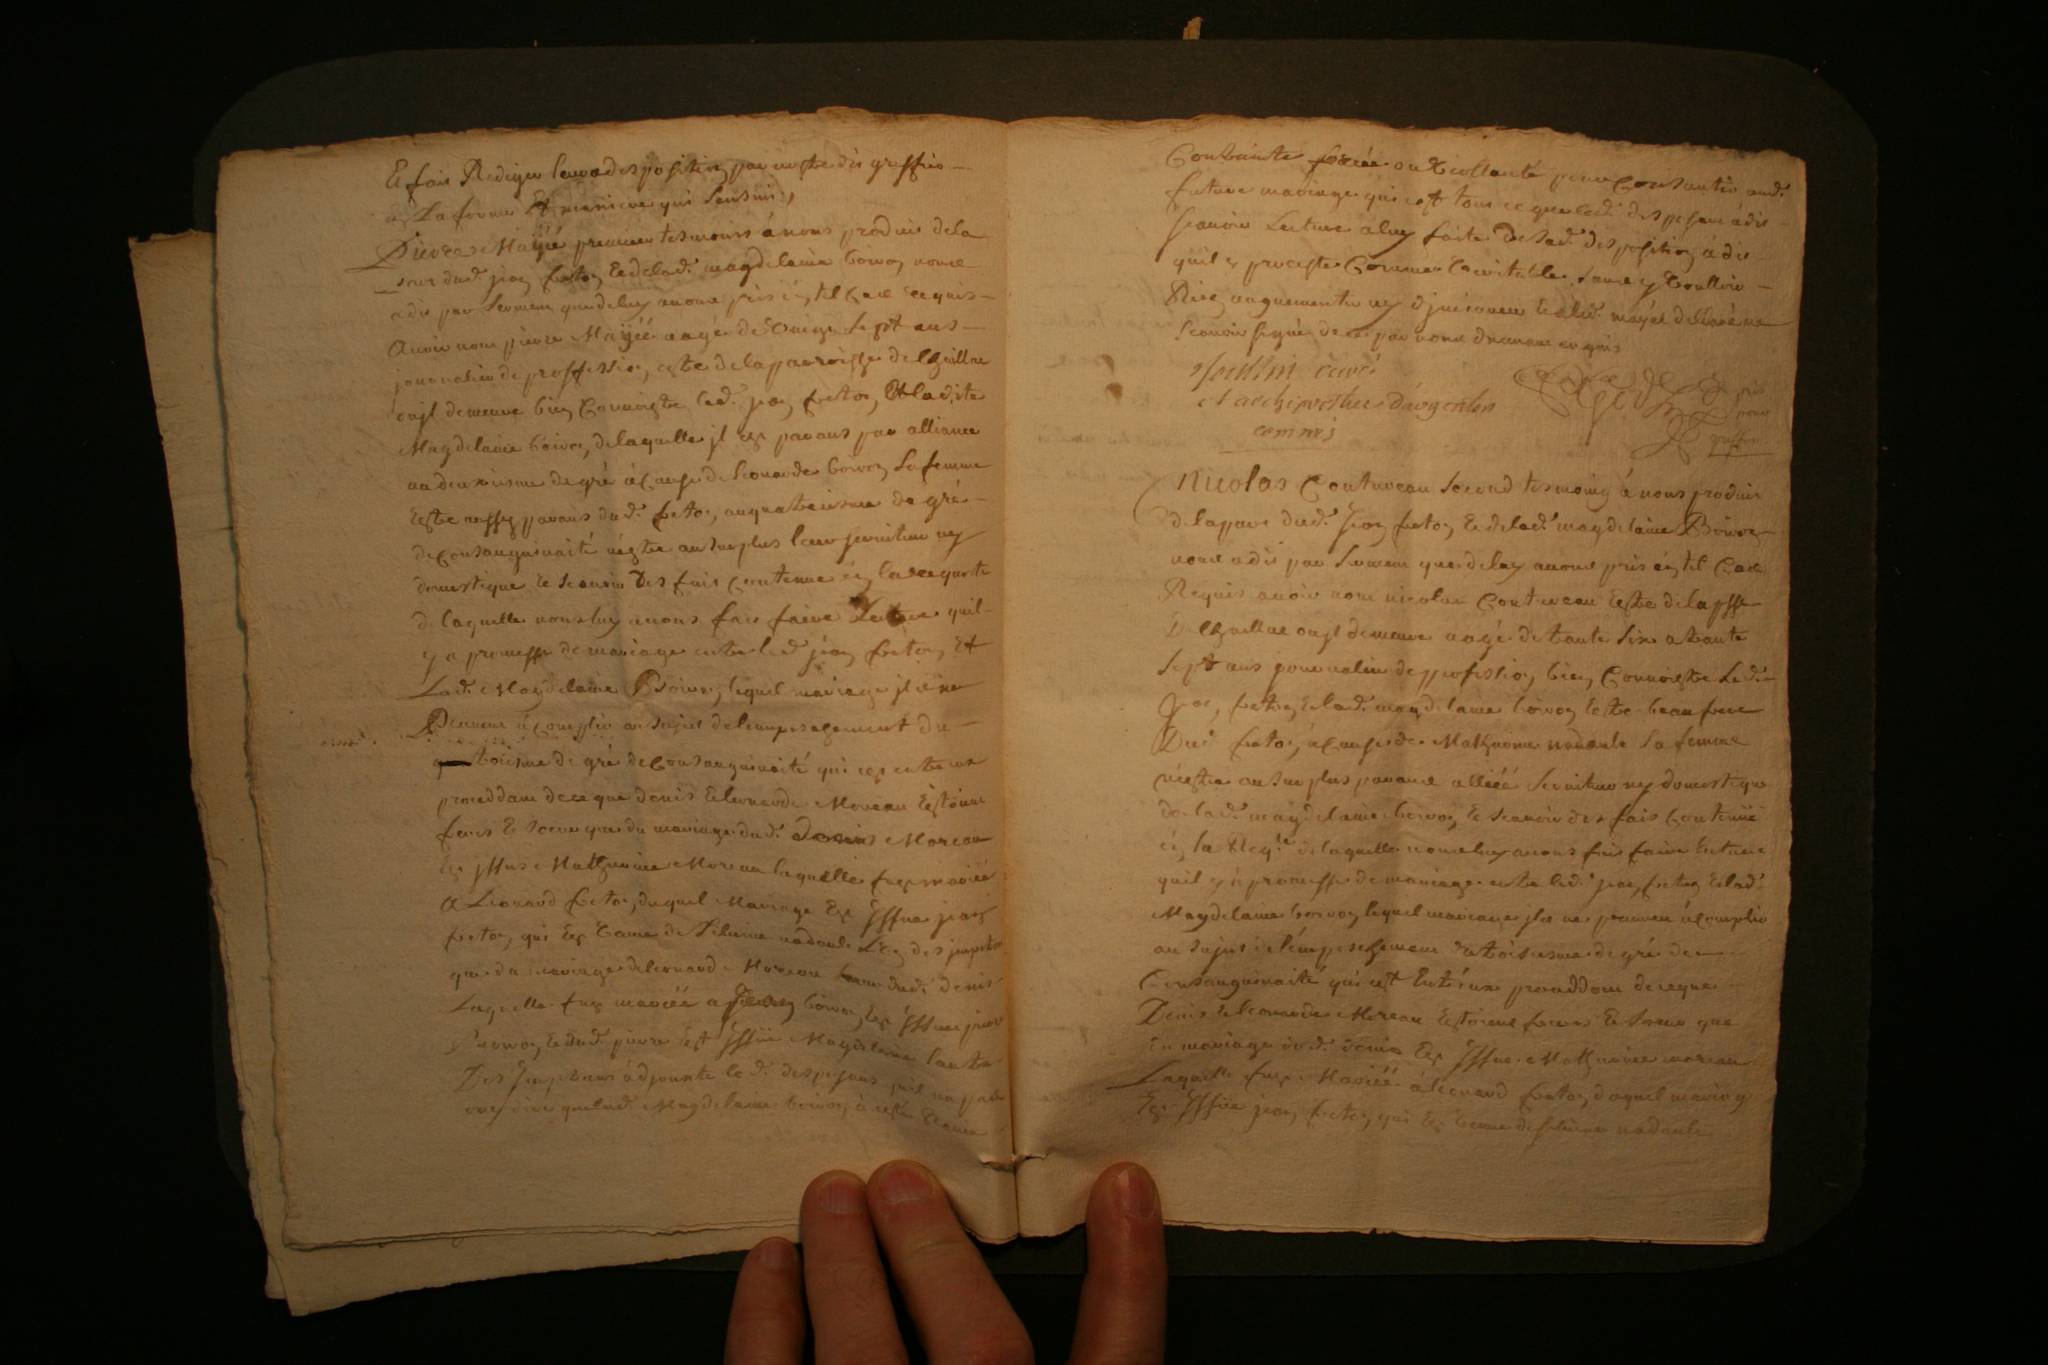 Et fait Rediger leurs despositions par nostre dit greffier
en La forme Et maniere qui sensuit,
Pierre Mayié premier tesmoins á nous produit de la
part dud. jean freton Et de lad. magdelaine boiron nous
a dit par serment que de luy avons pris en tel cas requis
avoir nom pierre Mayié aagé de sept ans
journalier de proffession, estre de la parroisse de
ou jl demeure bien Connoistre led. jean freton, Et ladite
Magdelaine boiron, de laquelle jl est parans par alliance
au deuxiesme degré á Cause de Leonarde boiron La femme
Estre aussy parans dud. freton, au quatriesme degré
de Consanguinaité n'estre au surplus leur serviteur ny
domestique Et scavoir Des fait Contenue en la requeste
de laquelle nous luy avons fait faire Lecture quil
y a promesse de mariage entre led. jean freton, Et
Lad. Magdelaine Boiron lequel mariage jl ne
Peuvent acomplir au sujet de lempeschement du
troiesme degré de Consanguinaité qui est entre eux
proceddant de ce que denis Et leonarde Moreau Estoient
freres Et soeur que du mariage dud. denis Moreau
Est jssus Mathurine Moreau laquelle fust mariéé
A Leonard freton, duquel Mariage Est jssue jean
freton, qui Est nadaule L'un des jmpetrans
que du mariage de leonarde Moreau soeur dud. denis
Laquelle fust mariéé a boiron, Est jssue pierre
boiron, Et dud. pierre Est jssüe Magdelaine Lautre
Des jmpetrans adjouste le d. desposans quil na pas
ouy dire que lad. Magdelaine boiron á esté
Contrainte forcée ou viollanté pour Consantir aud.
future mariage qui est tous ce que led. desposant á dit
scavoir Lecture á luy faite De sad. desposition, á dit
quil y persiste Comme veritable, sans y voulloir
Rien augmenter ny diminuer Et led. mayié declaré ne
scavoir signer de ce par nous Enquis
curé
archiprestre d'argenton
commis
greffier
Nicolas Coutureau Second tesmoing á nous produit
de la part dud. jean freton, Et de lad. magdelaine Boiron
nous a dit par serment que de luy avons pris en tel Cas
Requis avoir nom nicolas Coutureau Estre de la psse
De ou jl demeure aagé de trante six a trante
sept ans journalier de proffession, bien Connoistre Led.
jean, freton, Et lad. magdelaine boiron Estre beau frere
Dud. freton, á Cause de Mathurine nadaule sa femme
n'estre au surplus parans alliéé serviteur ny domestique
de lad. magdelaine boiron, Et scavoir des fais Contenüe
en la Reqte. de laquelle nous luy avons fait faire Lecture
quil y á promesse de mariage entre led. jean, freton Et lad.
Magdelaine boiron, lequel mariage jls ne peuvent acomplir
au sujet de l'empeschement troisiesme degré de
Consanguinaité qui est Entr'eux proceddant de ce que
Denis Et leonarde Moreau Estoient freres Et soeur que
du mariage dud. denis Est jssue Mathurine moreau
Laquelle fust Mariéé á leonard freton, duquel mariage
Est jssüe jean, freton, qui Est nadaule